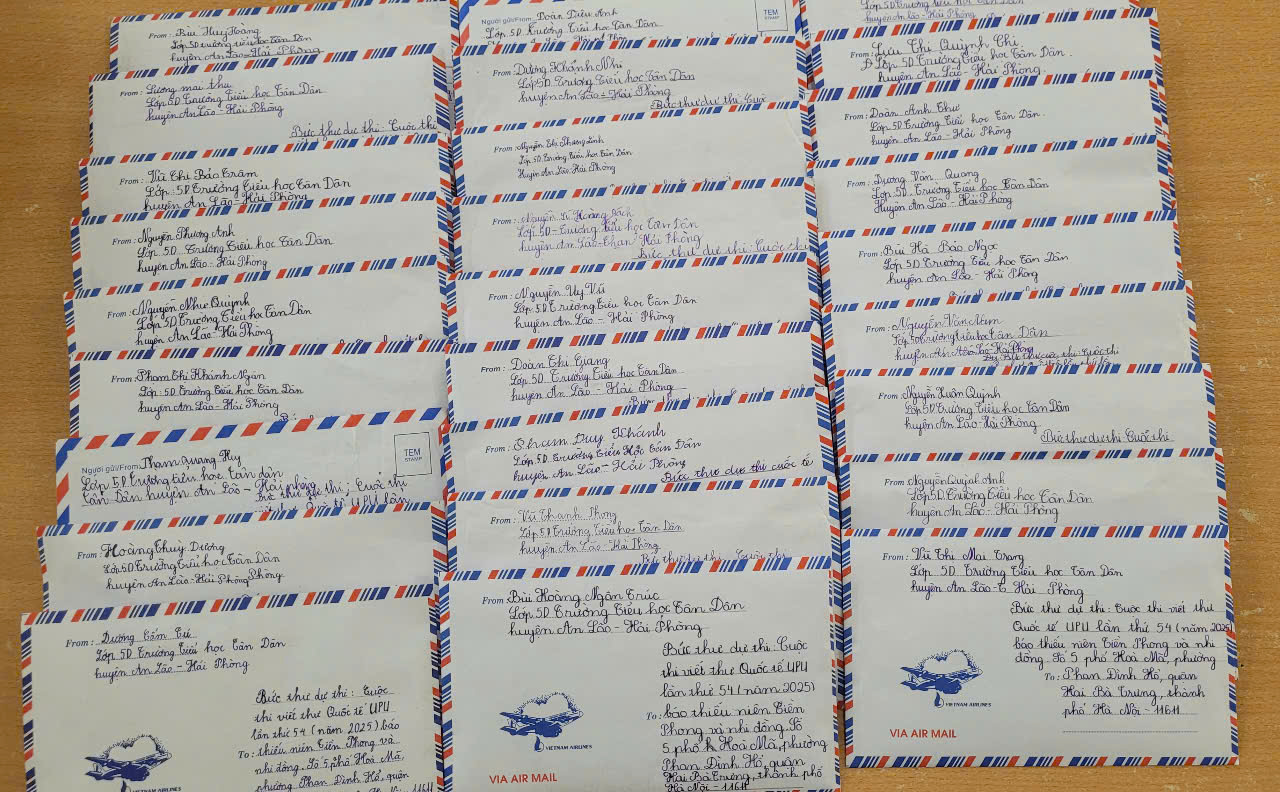 From: Bùi Huy Hoàng
Lớp 5D trường tiểu học Tân Dân
huyện An Lão - Hải Phòng
From: Lương mai thu
Lớp 5D Trường Tiểu học Tân Dân
huyện An Lão - Hải Phòng
Bức thư dự thi: Cuộc thi
From: Vũ Thi Bảo Trâm
Lớp: 5D Trường Tiểu học Tân Dân
huyện An Lão - Hải Phòng
From: Nguyễn Phương Anh
Lớp: 5D Trường Tiểu học Tân Dân
huyện An Lão - Hải Phòng
From: Nguyễn Như Quỳnh
Lớp 5D Trường Tiểu học Tân Dân
huyện An Lão - Hải Phòng
From: Phạm Thi Khánh Ngân
Lớp: 5D Trường Tiểu học Tân Dân
huyện An Lão - Hải Phòng
Người gửi/From: Phạm Quang Huy
Lớp 5D Trường tiểu học Tân dân
Tân Dân huyện An Lão - Hải phòng
thi; Cuộc thi
UPU lần
TEM
STAMP
From: Hoàng Thuỳ Dương
Lớp 5D Trường Tiểu học Tân Dân
huyện An Lão - Hải Phòng Phòng
From: Dương Cẩm Tú
Lớp 5D Trường Tiểu học Tân Dân
huyện An Lão - Hải Phòng
Bức thư dự thi: Cuộc
thi viết thư Quốc tế UPU
lần thứ 54 (năm 2025) báo
To: thiếu niên Tiền Phong và
nhi đồng. Số 5 phố Hoà Mã,
phường Phan Đình Hổ, quận
VIETNAM AIRLINES
Người gửi/From: Đoàn Diệu Anh
Lớp 5D Trường Tiểu học Tân Dân
TEM
STAMP
From: Dương Khánh Nhi
Lớp 5D Trường Tiểu học Tân Dân
huyện An Lão - Hải Phòng
Bức thư dự thi Cuộc
From: Nguyễn Thị Phương Linh
Lớp 5D Trường Tiểu học Tân Dân
Huyện An Lão, Hải Phòng
From: Nguyễn Hoàng Bách
Lớp 5D - Trường tiểu học Tân Dân
huyện An Lão - Hải Phòng
Bức thư dự thi: Cuộc thi
From: Nguyễn Uy Vũ
Lớp: 5D Trường Tiểu học Tân Dân
huyện An Lão - Hải Phòng
From: Đoàn Thi Giang
Lớp 5D Trường Tiểu học Tân Dân
huyện An Lão - Hải Phòng
From: Phạm Duy Khánh
Lớp 5D Trường Tiểu Học Tân Dân
huyện An Lão - Hải Phòng
Bức thư dự thi cuốc tế
From: Vũ Thanh Phong
Lớp 5D Trường Tiểu học Tân Dân
huyện An Lão - Hải Phòng
Bức thư dự thi Cuộc thi
From: Bùi Hoàng Ngân Trúc
Lớp 5D Trường Tiểu học Tân Dân
huyện An Lão - Hải Phòng
Bức thư dự thi: Cuộc
thi viết thư Quốc tế UPU
lần thứ 54 (năm 2025)
To: báo thiếu niên Tiền
Phong và nhi đồng. Số
5 phố Hoà Mã, phường
Phan Đình Hổ, quận
Hai Bà Trưng, thành phố
Hà Nội - 11611
VIETNAM AIRLINES
VIA AIR MAIL
huyện An Lão - Hải Phòng
From: Lưu Thi Quỳnh Chi
Lớp 5D Trường Tiểu học Tân Dân.
huyện An Lão - Hải Phòng.
From: Đoàn Anh Thư
Lớp 5D Trường Tiểu học Tân Dân.
huyện An Lão - Hải Phòng
From: Dương Văn Quang
Lớp: 5D Trường Tiểu học Tân Dân
Huyện An Lão - Hải Phòng
From: Bùi Hà Bảo Ngọc
Lớp 5D Trường Tiểu học Tân Dân
huyện An Lão - Hải Phòng
From: Nguyễn Văn
Lớp 5D Trường Tiểu học Tân Dân
huyện An Lão - Hải Phòng
thi: Cuộc thi
From: Nguyễn Xuân Quỳnh
Lớp 5D Trường Tiểu học Tân Dân
huyện An Lão - Hải Phòng
Bức thư dự thi Cuộc thi
From: Nguyễn Quỳnh Anh
Lớp 5D Trường Tiểu học Tân Dân
huyện An Lão - Hải Phòng
From: Vũ Thi Mai Trang
Lớp 5D Trường Tiểu học Tân Dân
huyện An Lão - Hải Phòng
Bức thư dự thi: Cuộc thi viết thư
Quốc tế UPU lần thứ 54 (năm 2025)
báo thiếu niên Tiền Phong và nhi
đồng. Số 5 phố Hoà Mã, phường
To: Phan Đình Hổ, quận
Hai Bà Trưng, thành
phố Hà Nội - 11611
VIETNAM AIRLINES
VIA AIR MAIL